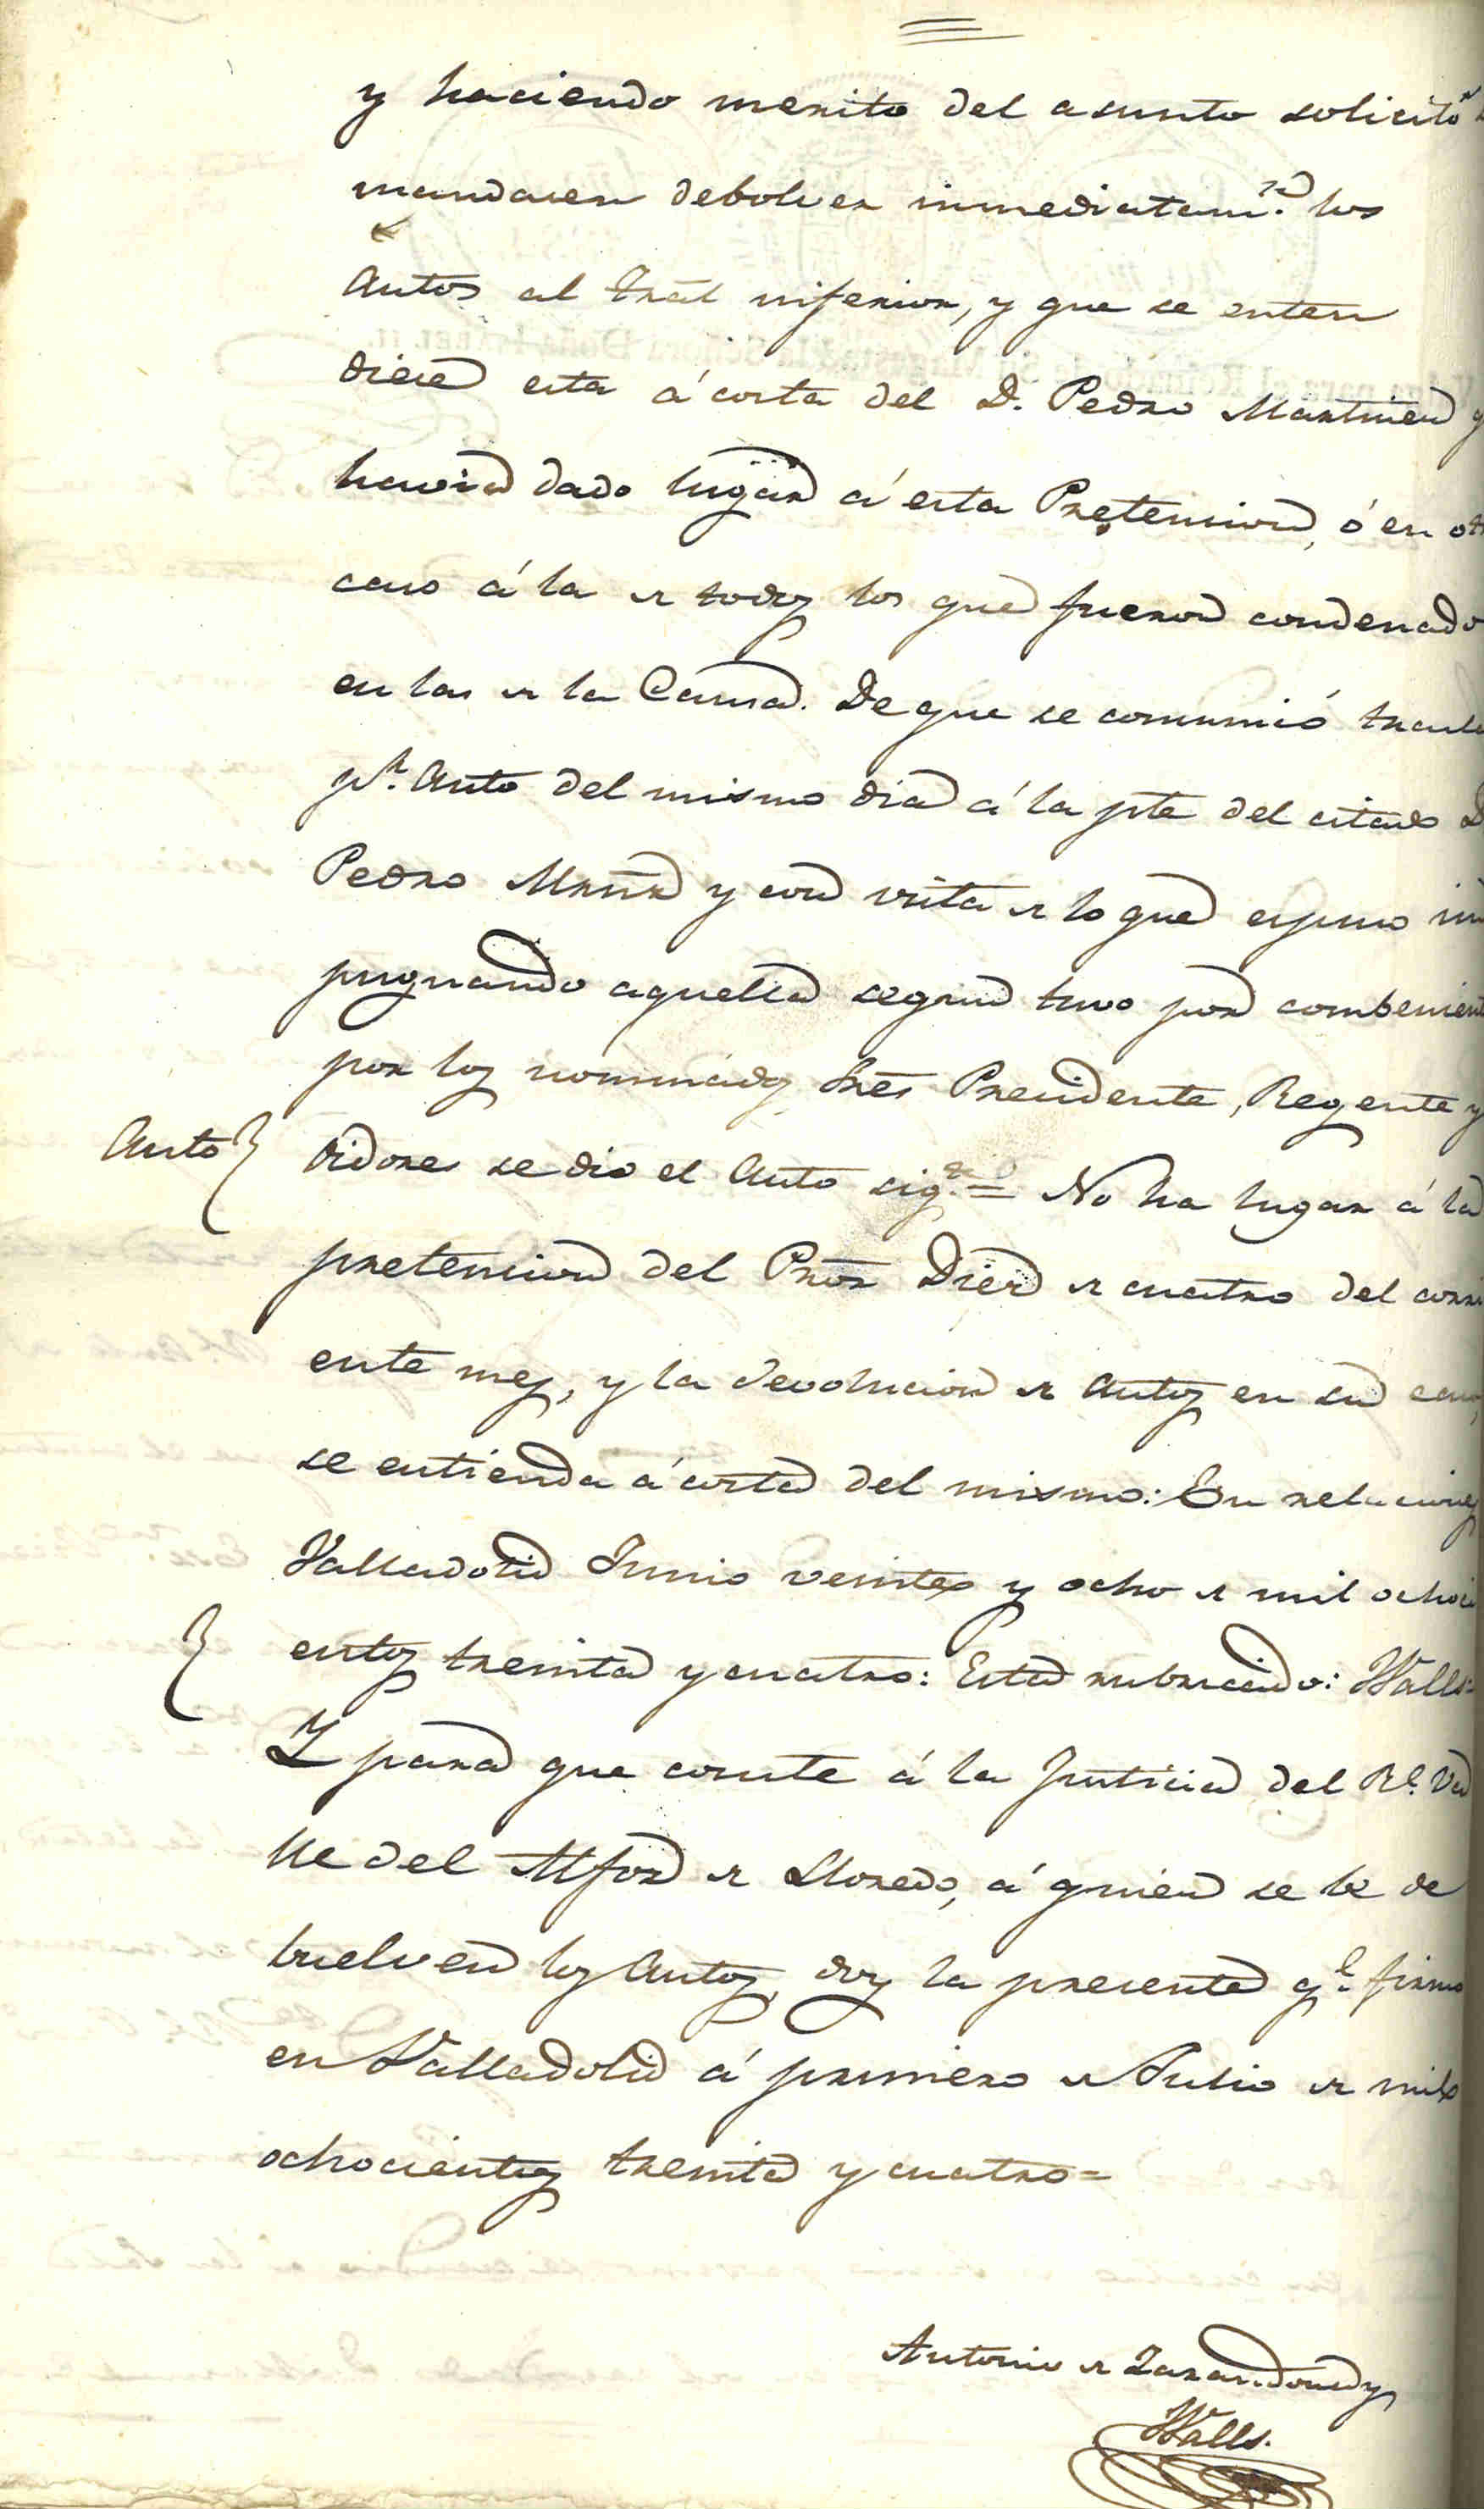 y haciendo merito del asunto solicitó
mandasen debolver inmediatam.te los
Autos al tral inferior, y que se enten
diese esta á costa del D. Pedro Martinez q
havia dado lugar á esta Pretension, ó en otr
caso á la de todos los que fueron condenado
en las de la Causa. De que se comunicó trasla
pr. Auto del mismo dia á la pte del citado D
Pedro Mrnz y con vista de lo que espuso im
pugnando aquella segun tuvo por combenient
por los nominados Sres Presidente, Regente y
Auto} oidores se dio el Auto sig.te = No ha lugar á la
pretension del Pror Diez de cuatro del corri
ente mes, y la devolucion de Autos en su caso,
se entienda á costa del mismo: En relaciones
Valladolid Junio veinte y ocho de mil ochoci
entos treinta y cuatro: Esta rubricado: Walls=
Y para que conste á la Justicia del Rl. Va
lle del Alfoz de Lloredo, á quien se le de
buelven los Autos, doy la presente q.e firmo
en Valladolid á primero de Julio de mil
ochocientos treinta y cuatro=
Antonio de Zarandona y
Walls.